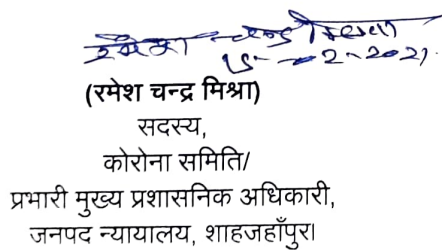 रमेश चन्द्र मिश्रा
15-2-2021
(रमेश चन्द्र मिश्रा)
सदस्य,
कोरोना समिति/
प्रभारी मुख्य प्रशासनिक अधिकारी,
जनपद न्यायालय, शाहजहाँपुर।